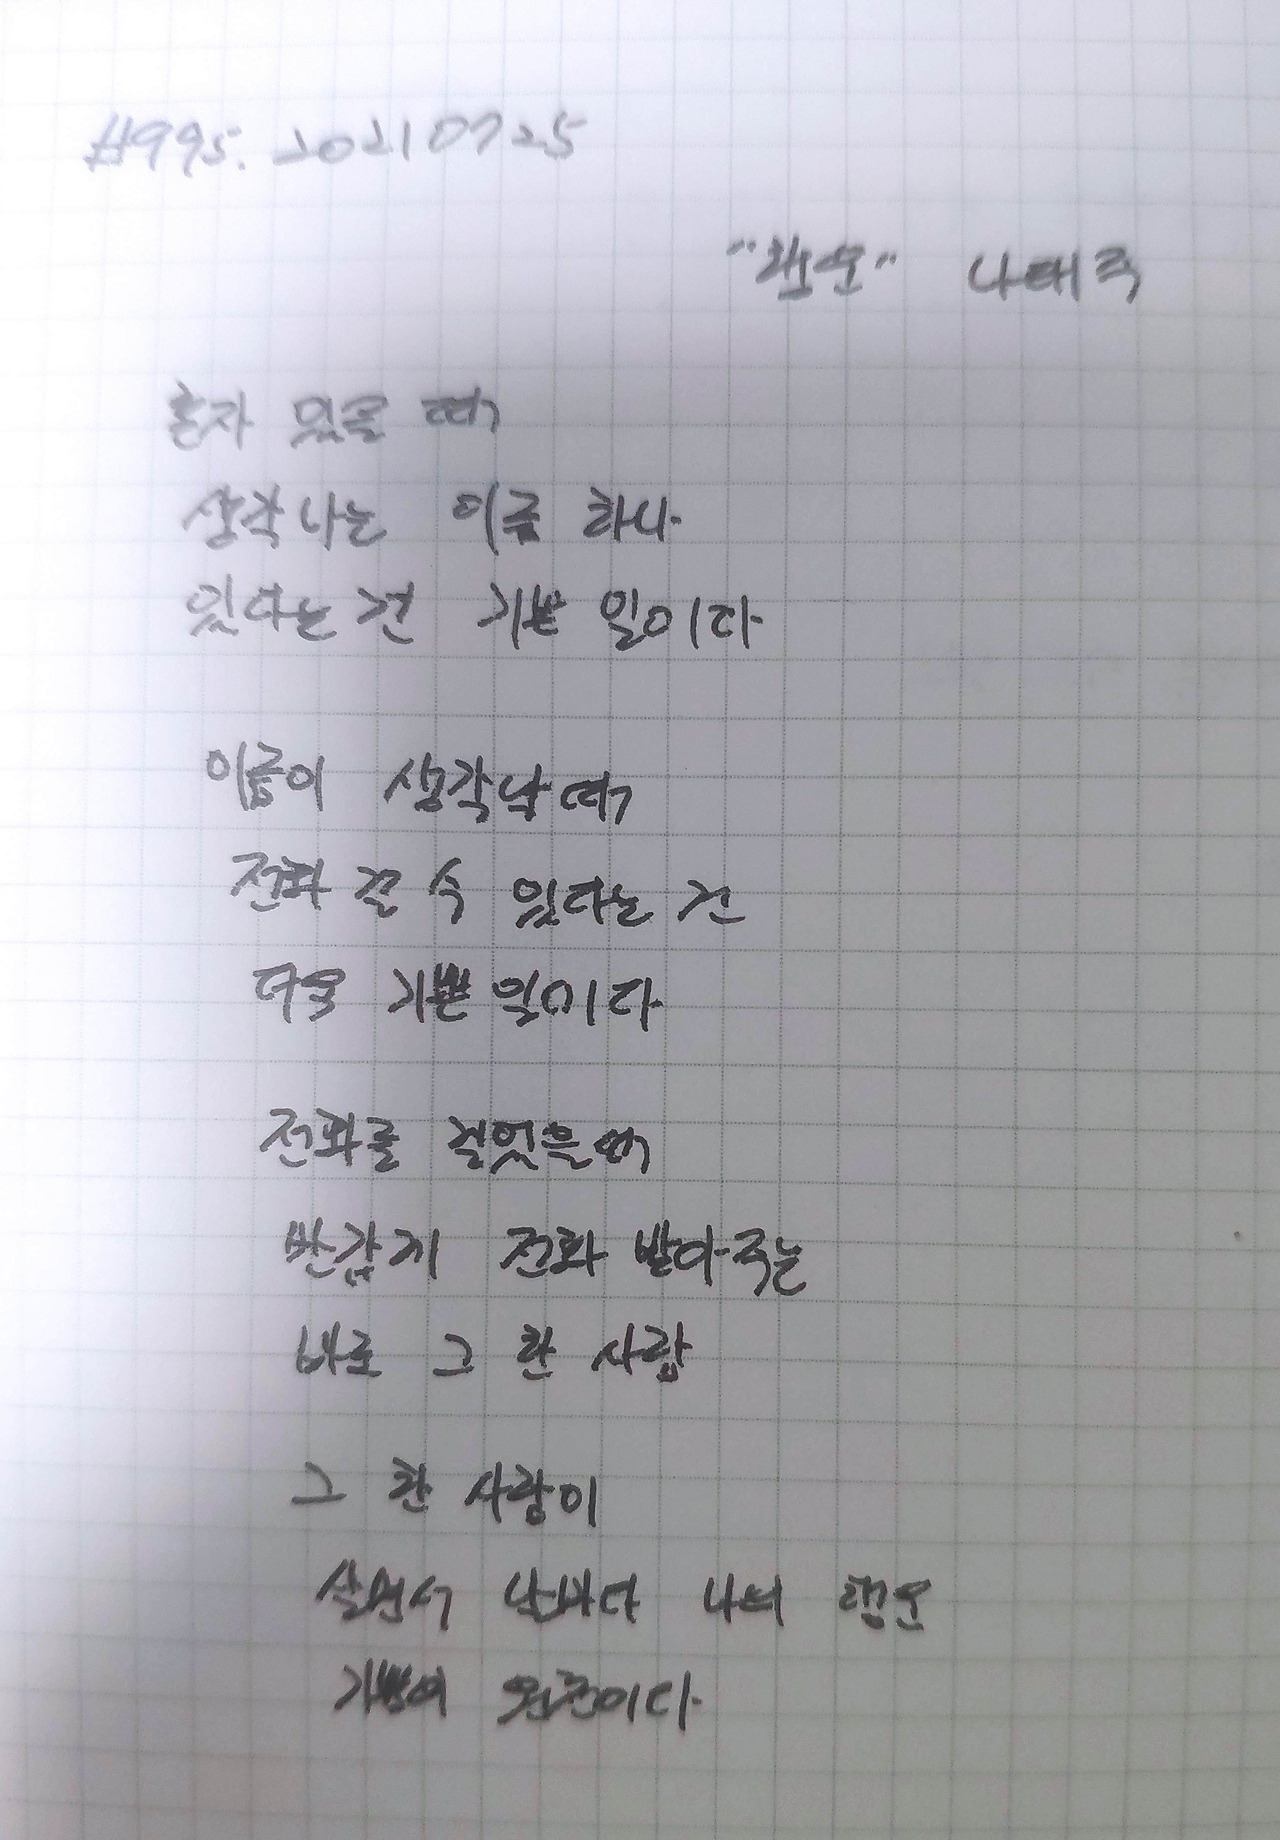 #995. 20210725
"행운" 나태주
혼자 있을 때
생각나는 이름 하나
있다는 건 기쁜 일이다
이름이 생각날 때
전화 걸 수 있다는 건
더욱 기쁜 일이다
전화를 걸었을 때
반갑게 전화 받아주는
바로 그 한 사람
그 한 사람이
살면서 날마다 나의 행운
기쁨의 원천이다